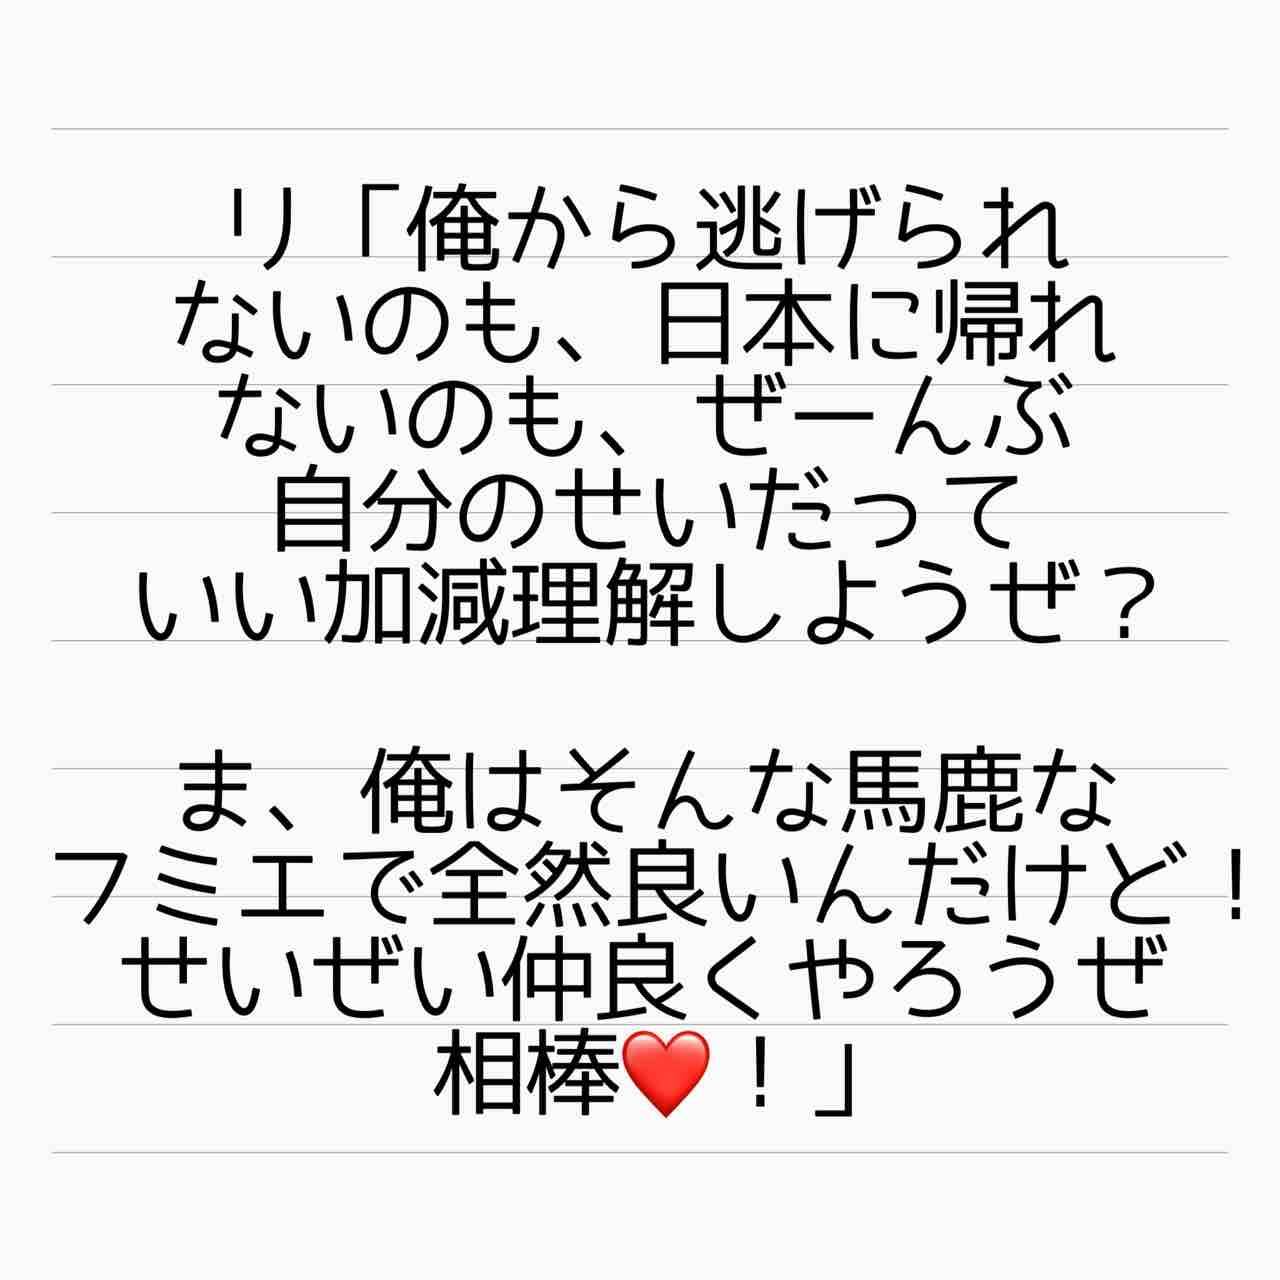 リ「俺から逃げられ
ないのも、日本に帰れ
ないのも、ぜーんぶ
自分のせいだって
いい加減理解しようぜ？
ま、俺はそんな馬鹿な
フミエで全然良いんだけど！
せいぜい仲良くやろうぜ
相棒❤️！」